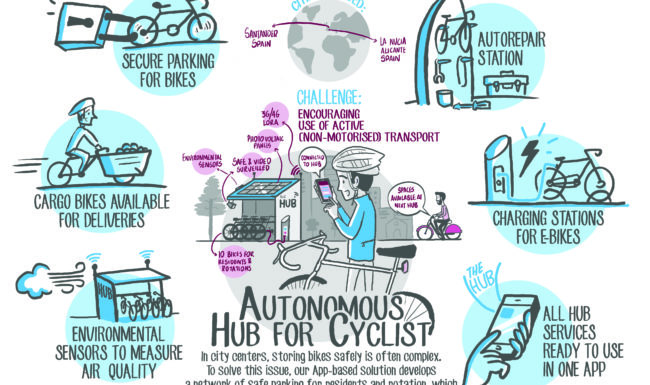 SANTANDER
SPAIN
LA NUCIA
ALICANTE
SPAIN
SECURE PARKING
FOR BIKES
AUTOREPAIR
STATION
CHALLENGE:
ENCOURAGING
USE OF ACTIVE
(NON-MOTORISED) TRANSPORT
3G/4G
LORA
PHOTOVOLTAIC
PANELS
ENVIRONMENTAL
SENSORS
SAFE & VIDEO
SURVEILLED
CONNECTED
TO HUB
THE
HUB
SPACES
AVAILABLE AT
NEXT HUB
10 BIKES FOR
RESIDENTS &
ROTATIONS
CARGO BIKES AVAILABLE
FOR DELIVERIES
CHARGING STATIONS
FOR E-BIKES
HUB
ENVIRONMENTAL
SENSORS TO MEASURE
AIR QUALITY
THE
HUB
ALL HUB
SERVICES
READY TO USE
IN ONE APP
AUTONOMOUS
HUB FOR CYCLIST
In city centers, storing bikes safely is often complex.
To solve this issue, our App-based solution develops
a network of safe parking for residents and rotation, which